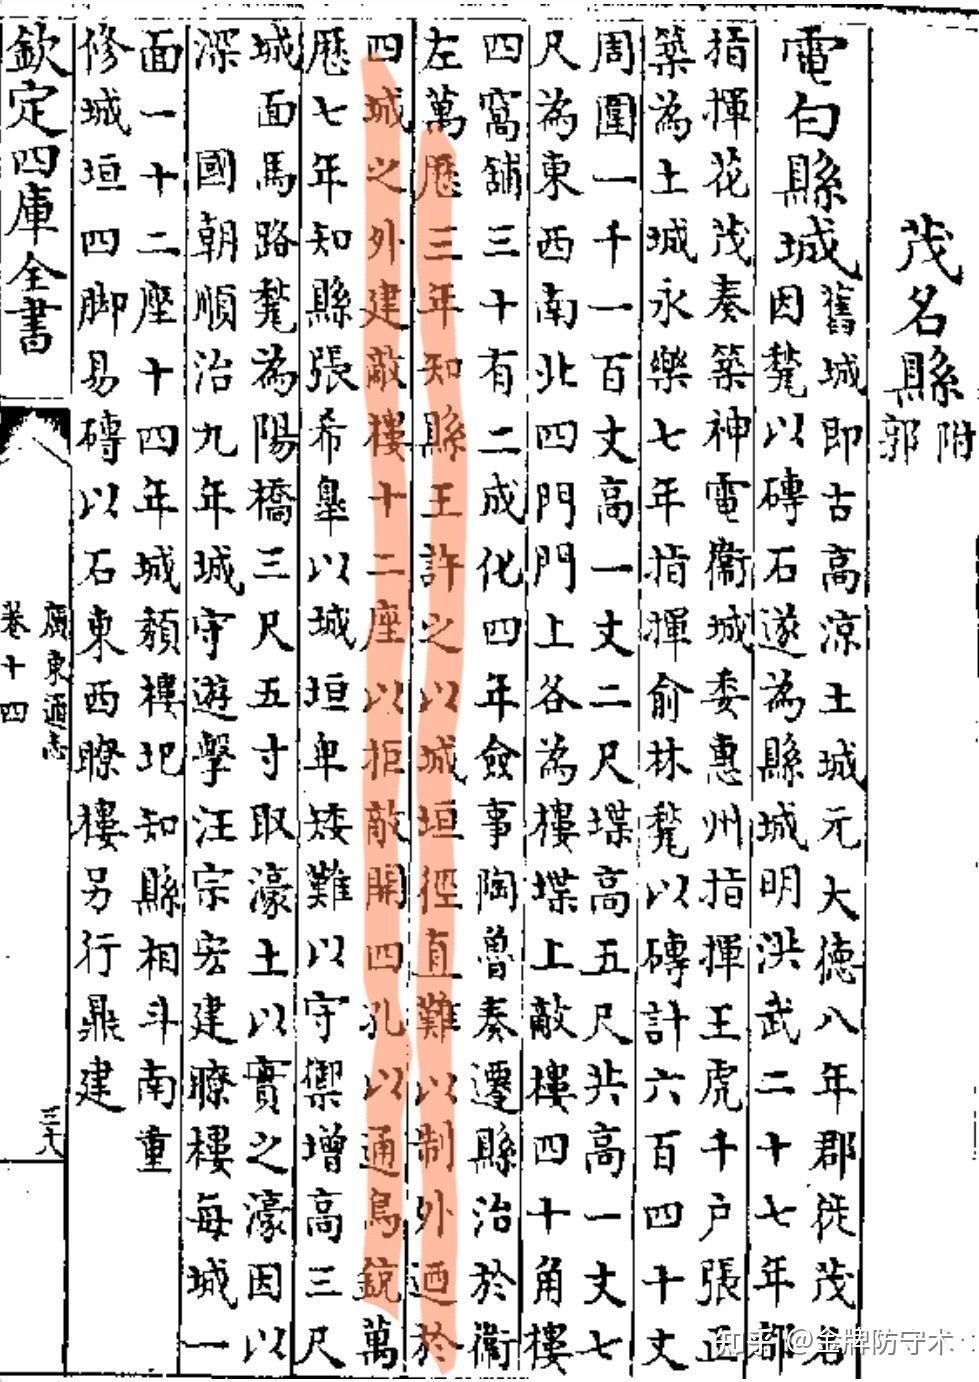 茂名縣附郭
電白縣城舊城即古高涼土城元大徳八年郡徙茂名
因甃以磚石遂為縣城明洪武二十七年部
指揮花茂奏築神電衞城委惠州指揮王虎千户張正
築為土城永樂七年指揮俞林甃以磚計六百四十丈
周圍一千一百丈高一丈二尺堞高五尺共高一丈七
尺為東西南北四門門上各為樓堞上敵樓四十角樓
四窩舖三十有二成化四年僉事陶魯奏遷縣治於衞
左萬歴三年知縣王許之以城垣徑直難以制外廼於
四城之外建敵樓十二座以拒敵開四孔以通鳥銃萬
歴七年知縣張希臯以城垣卑矮難以守禦增高三尺
城面馬路甃為陽橋三尺五寸取濠土以實之濠因以
深 國朝順治九年城守遊擊汪宗宏建瞭樓每城一
面一十二座十四年城頽樓圯知縣相斗南重
修城垣四脚易磚以石東西瞭樓另行鼎建
欽定四庫全書
廣東通志
卷十四
三六
知乎 @金牌防守术